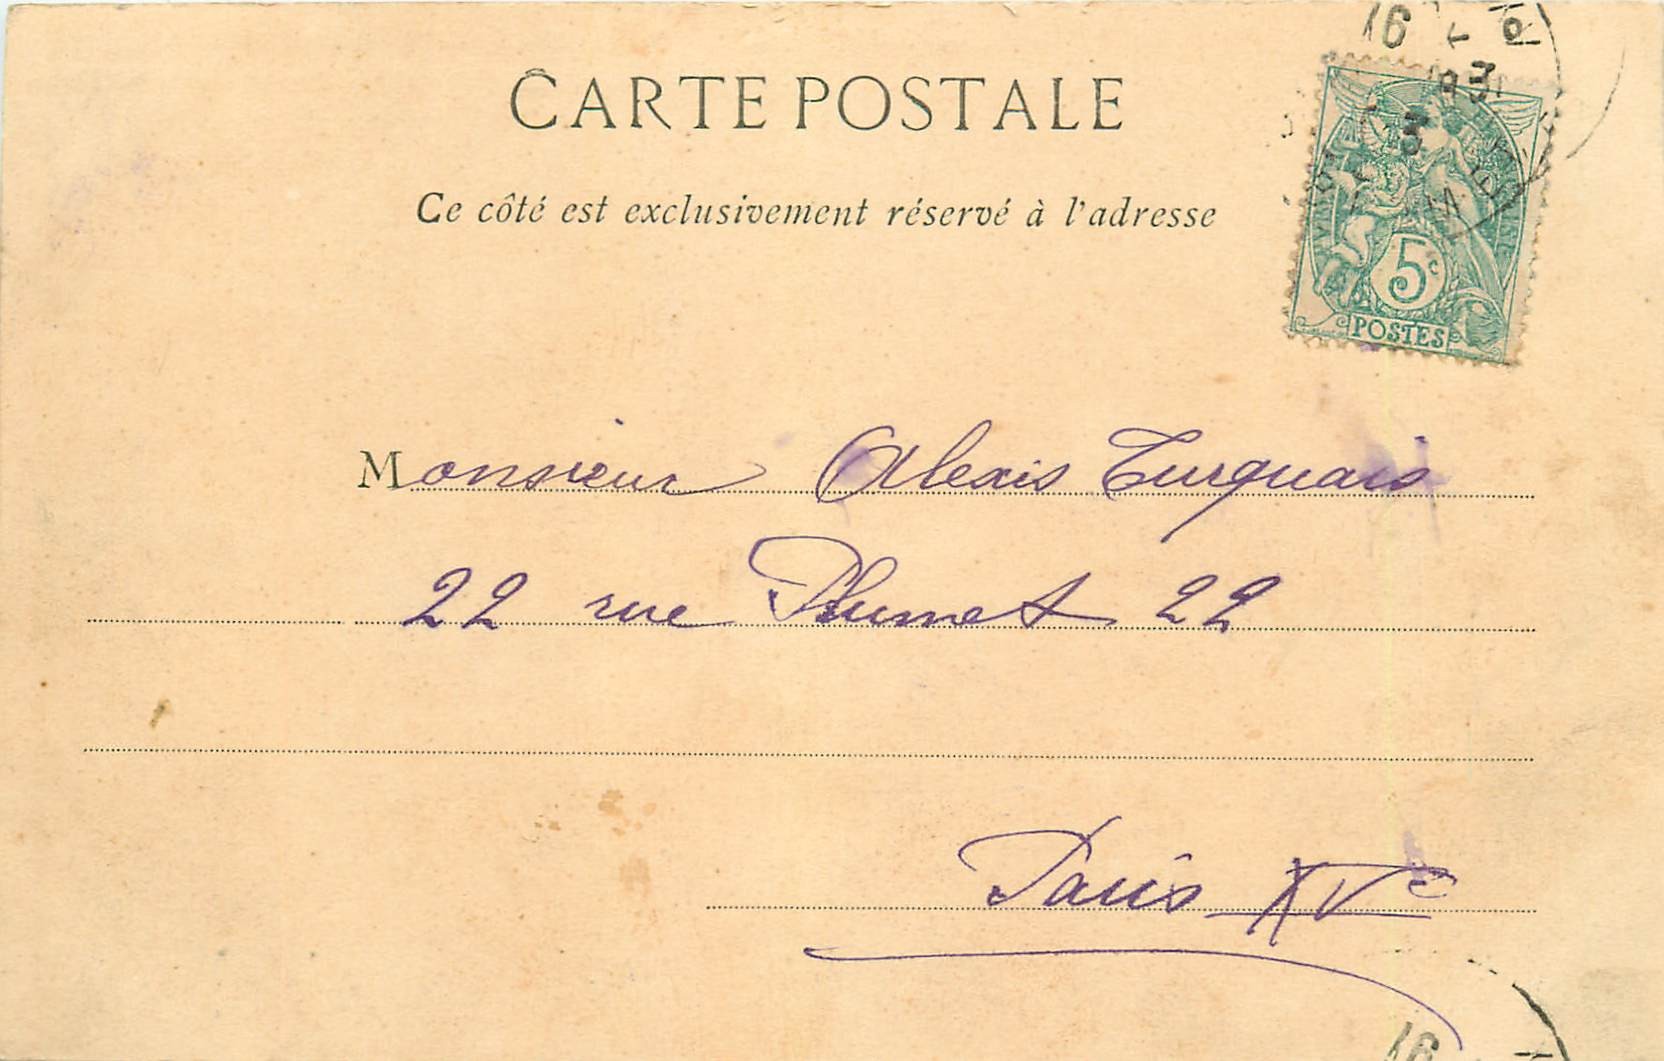 CARTE POSTALE
Ce côté est exclusivement réservé à l'adresse
16
5c
POSTES
Monsieur Alexis Turquais
22 rue Plumet 22
Paris XVe
16